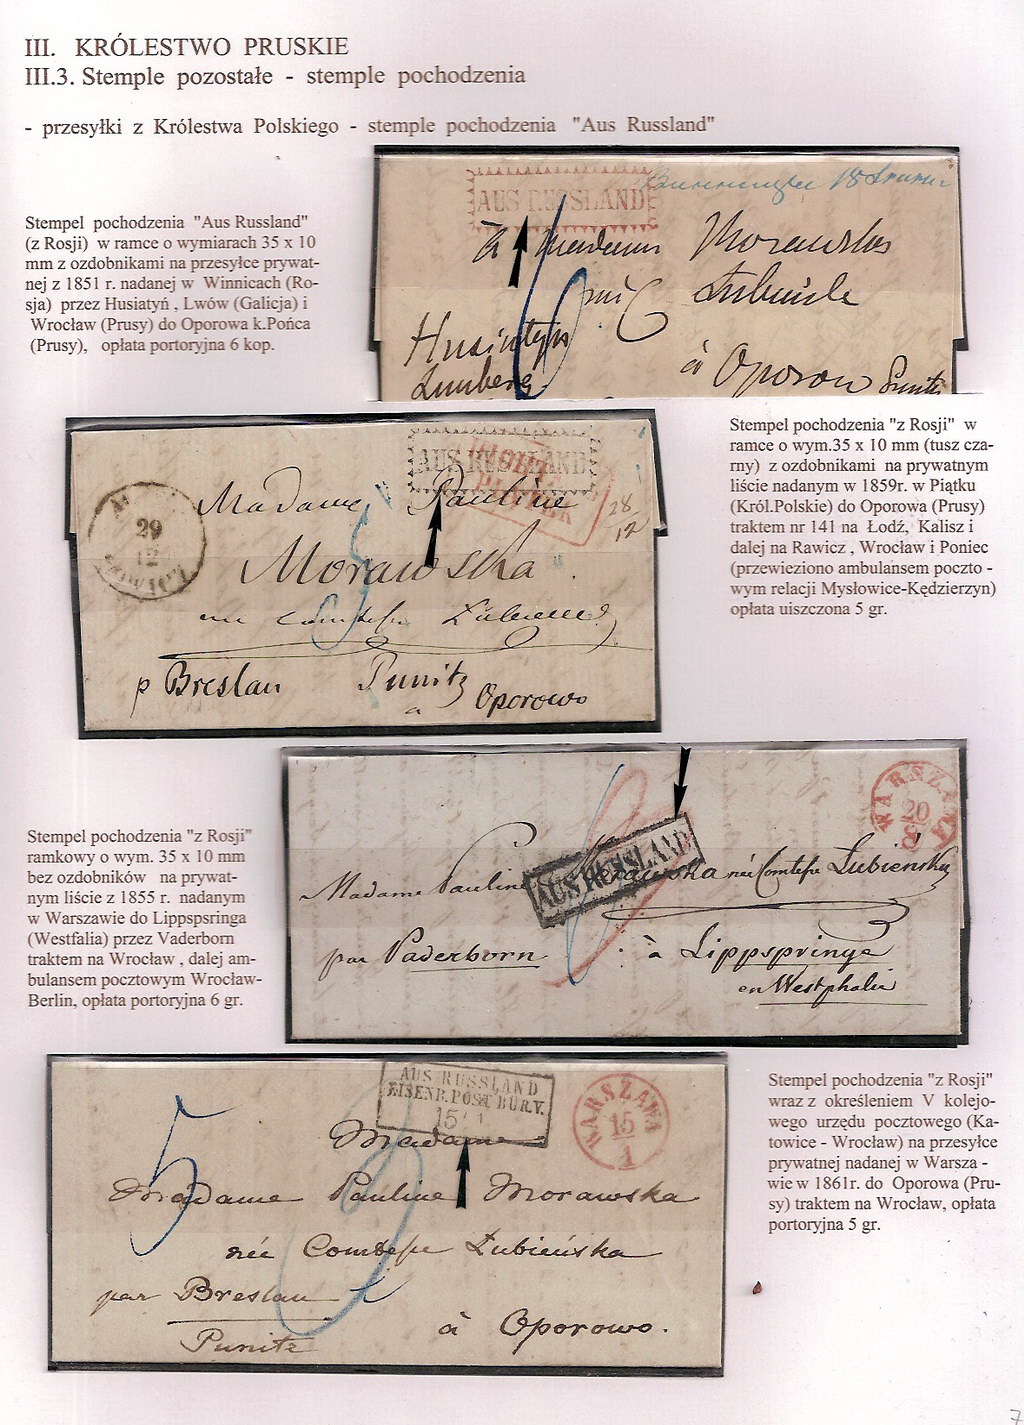 III. KRÓLESTWO PRUSKIE
III.3. Stemple pozostałe - stemple pochodzenia
- przesyłki z Królestwa Polskiego - stemple pochodzenia "Aus Russland"
Stempel pochodzenia "Aus Russland"
(z Rosji) w ramce o wymiarach 35 x 10
mm z ozdobnikami na przesyłce prywat-
nej z 1851 r. nadanej w Winnicach (Ro-
sja) przez Husiatyń , Lwów (Galicja) i
Wrocław (Prusy) do Oporowa k.Pońca
(Prusy), opłata portoryjna 6 kop.
AUS RUSSLAND
à Madame Morawska
née C Łubieńska
Husiatyn
Lemberg
à Oporow Punitz
Stempel pochodzenia "z Rosji" w
ramce o wym.35 x 10 mm (tusz cza-
rny) z ozdobnikami na prywatnym
liście nadanym w 1859r. w Piątku
(Król.Polskie) do Oporowa (Prusy)
traktem nr 141 na Łodź, Kalisz i
dalej na Rawicz , Wrocław i Poniec
(przewieziono ambulansem poczto -
wym relacji Mysłowice-Kędzierzyn)
opłata uiszczona 5 gr.
AUS RUSSLAND
28
12
29
12
Madame Pauline
Morawska
née Comtesse Łubieńska
p Breslau Punitz
à Oporowo
Stempel pochodzenia "z Rosji"
ramkowy o wym. 35 x 10 mm
bez ozdobników na prywat-
nym liście z 1855 r. nadanym
w Warszawie do Lippspsringa
(Westfalia) przez Vaderborn
traktem na Wrocław , dalej am-
bulansem pocztowym Wrocław-
Berlin, opłata portoryjna 6 gr.
WARSZAWA
20
AUS RUSSLAND
Madame Pauline Morawska née Comtesse Łubieńska
par Paderborn à Lippspringe
en Westphalie
Stempel pochodzenia "z Rosji"
wraz z określeniem V kolejo-
wego urzędu pocztowego (Ka-
towice - Wrocław) na przesyłce
prywatnej nadanej w Warsza -
wie w 1861r. do Oporowa (Pru-
sy) traktem na Wrocław, opłata
portoryjna 5 gr.
AUS RUSSLAND
EISENB.POST BUR.V.
WARSZAWA
15
1
5
Madame
Madame Pauline Morawska
née Comtesse Łubieńska
par Breslau
Punitz
à Oporowo.
7